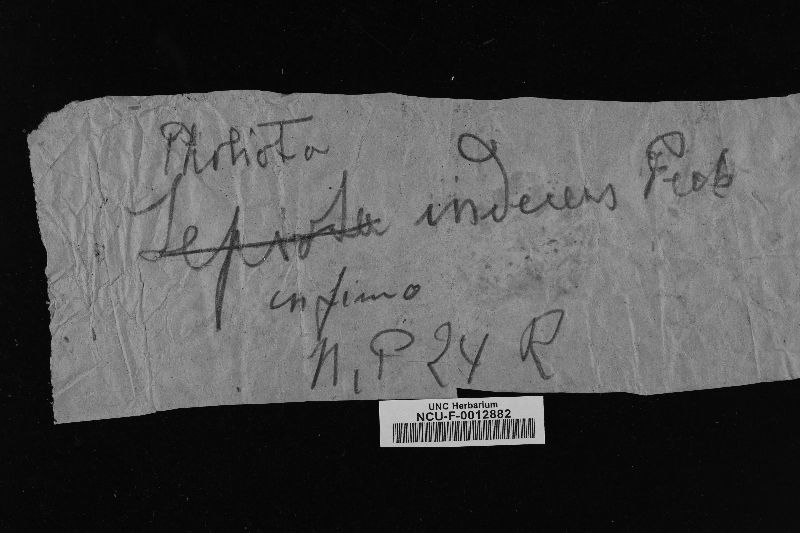 Pholiota
Lepiota indecens Peck
in fimo
N, P 24 R
UNC Herbarium
NCU-F-0012882